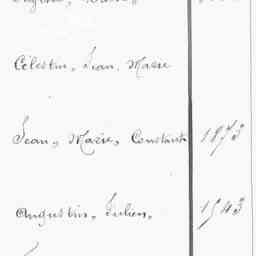 Célestin, Jean, Marie
Jean, Marie, Constant 1873
Augustin, Julien, 1843